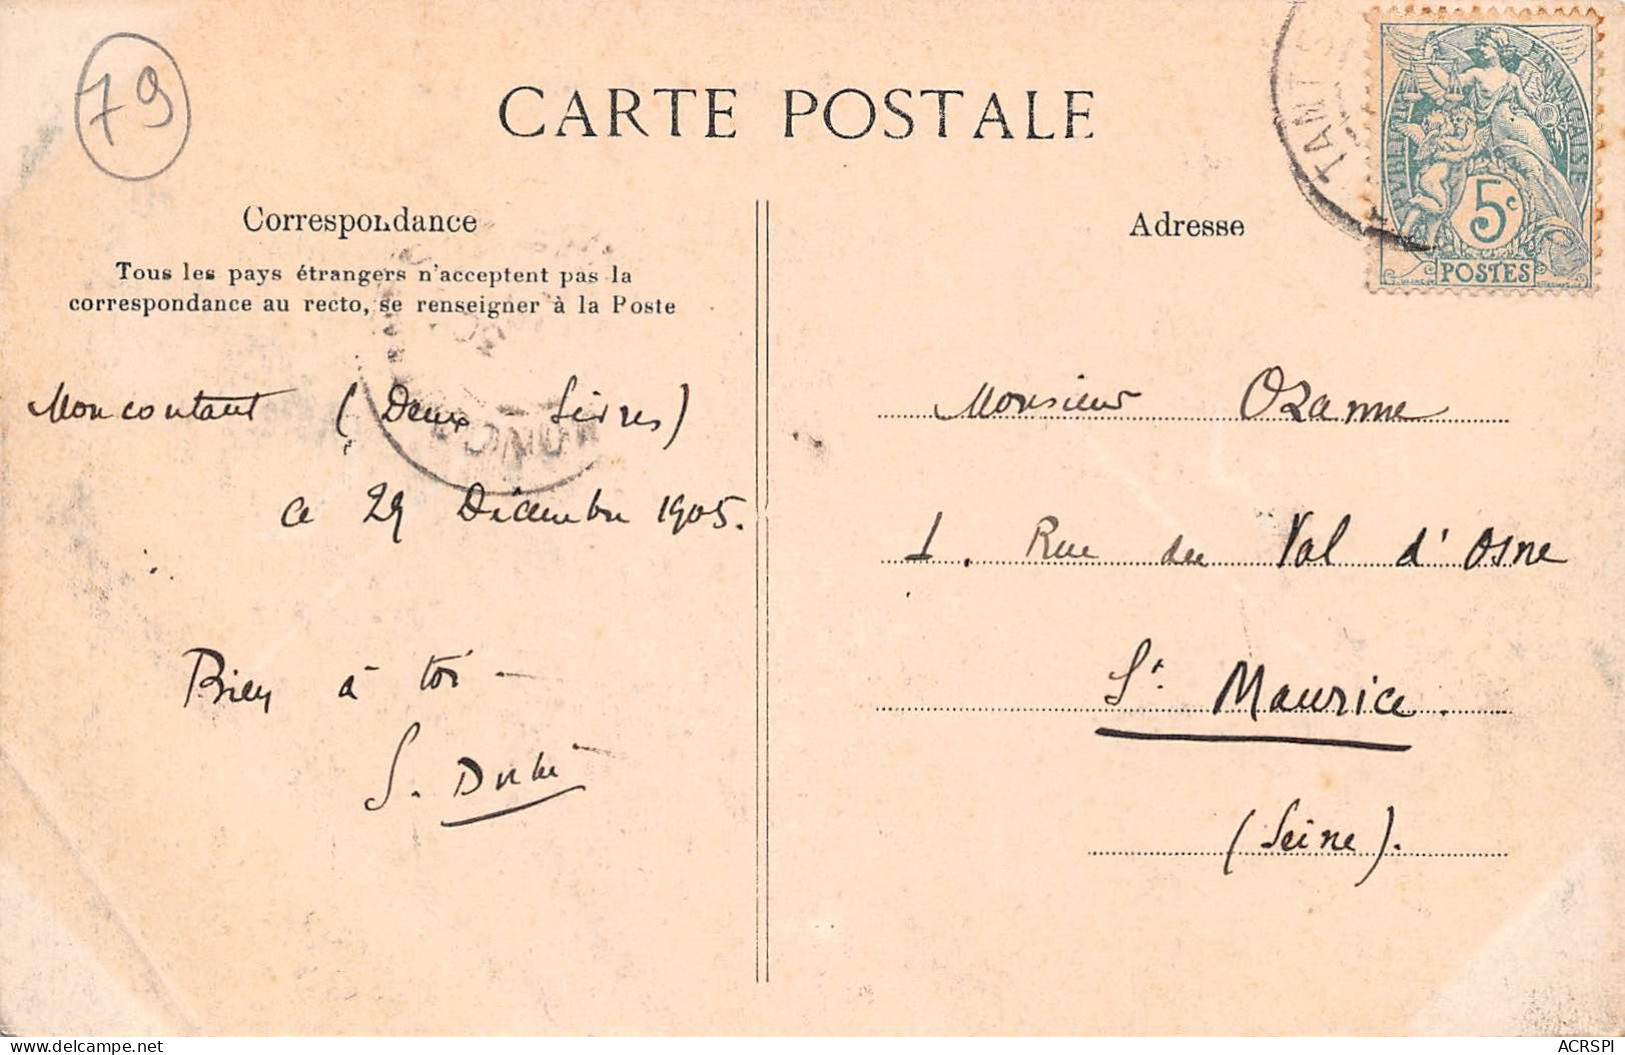 79
CARTE POSTALE
Correspondance
Tous les pays étrangers n'acceptent pas la
correspondance au recto, se renseigner à la Poste
Moncoutant (Deux-Sèvres)
ce 29 Décembre 1905.
Bien à toi -
S.
Adresse
FRANÇAISE
5c
POSTES
TANT
Monsieur Ozanne
1. Rue du Val d'Osne
St. Maurice.
(Seine).
www.delcampe.net
ACRSPI